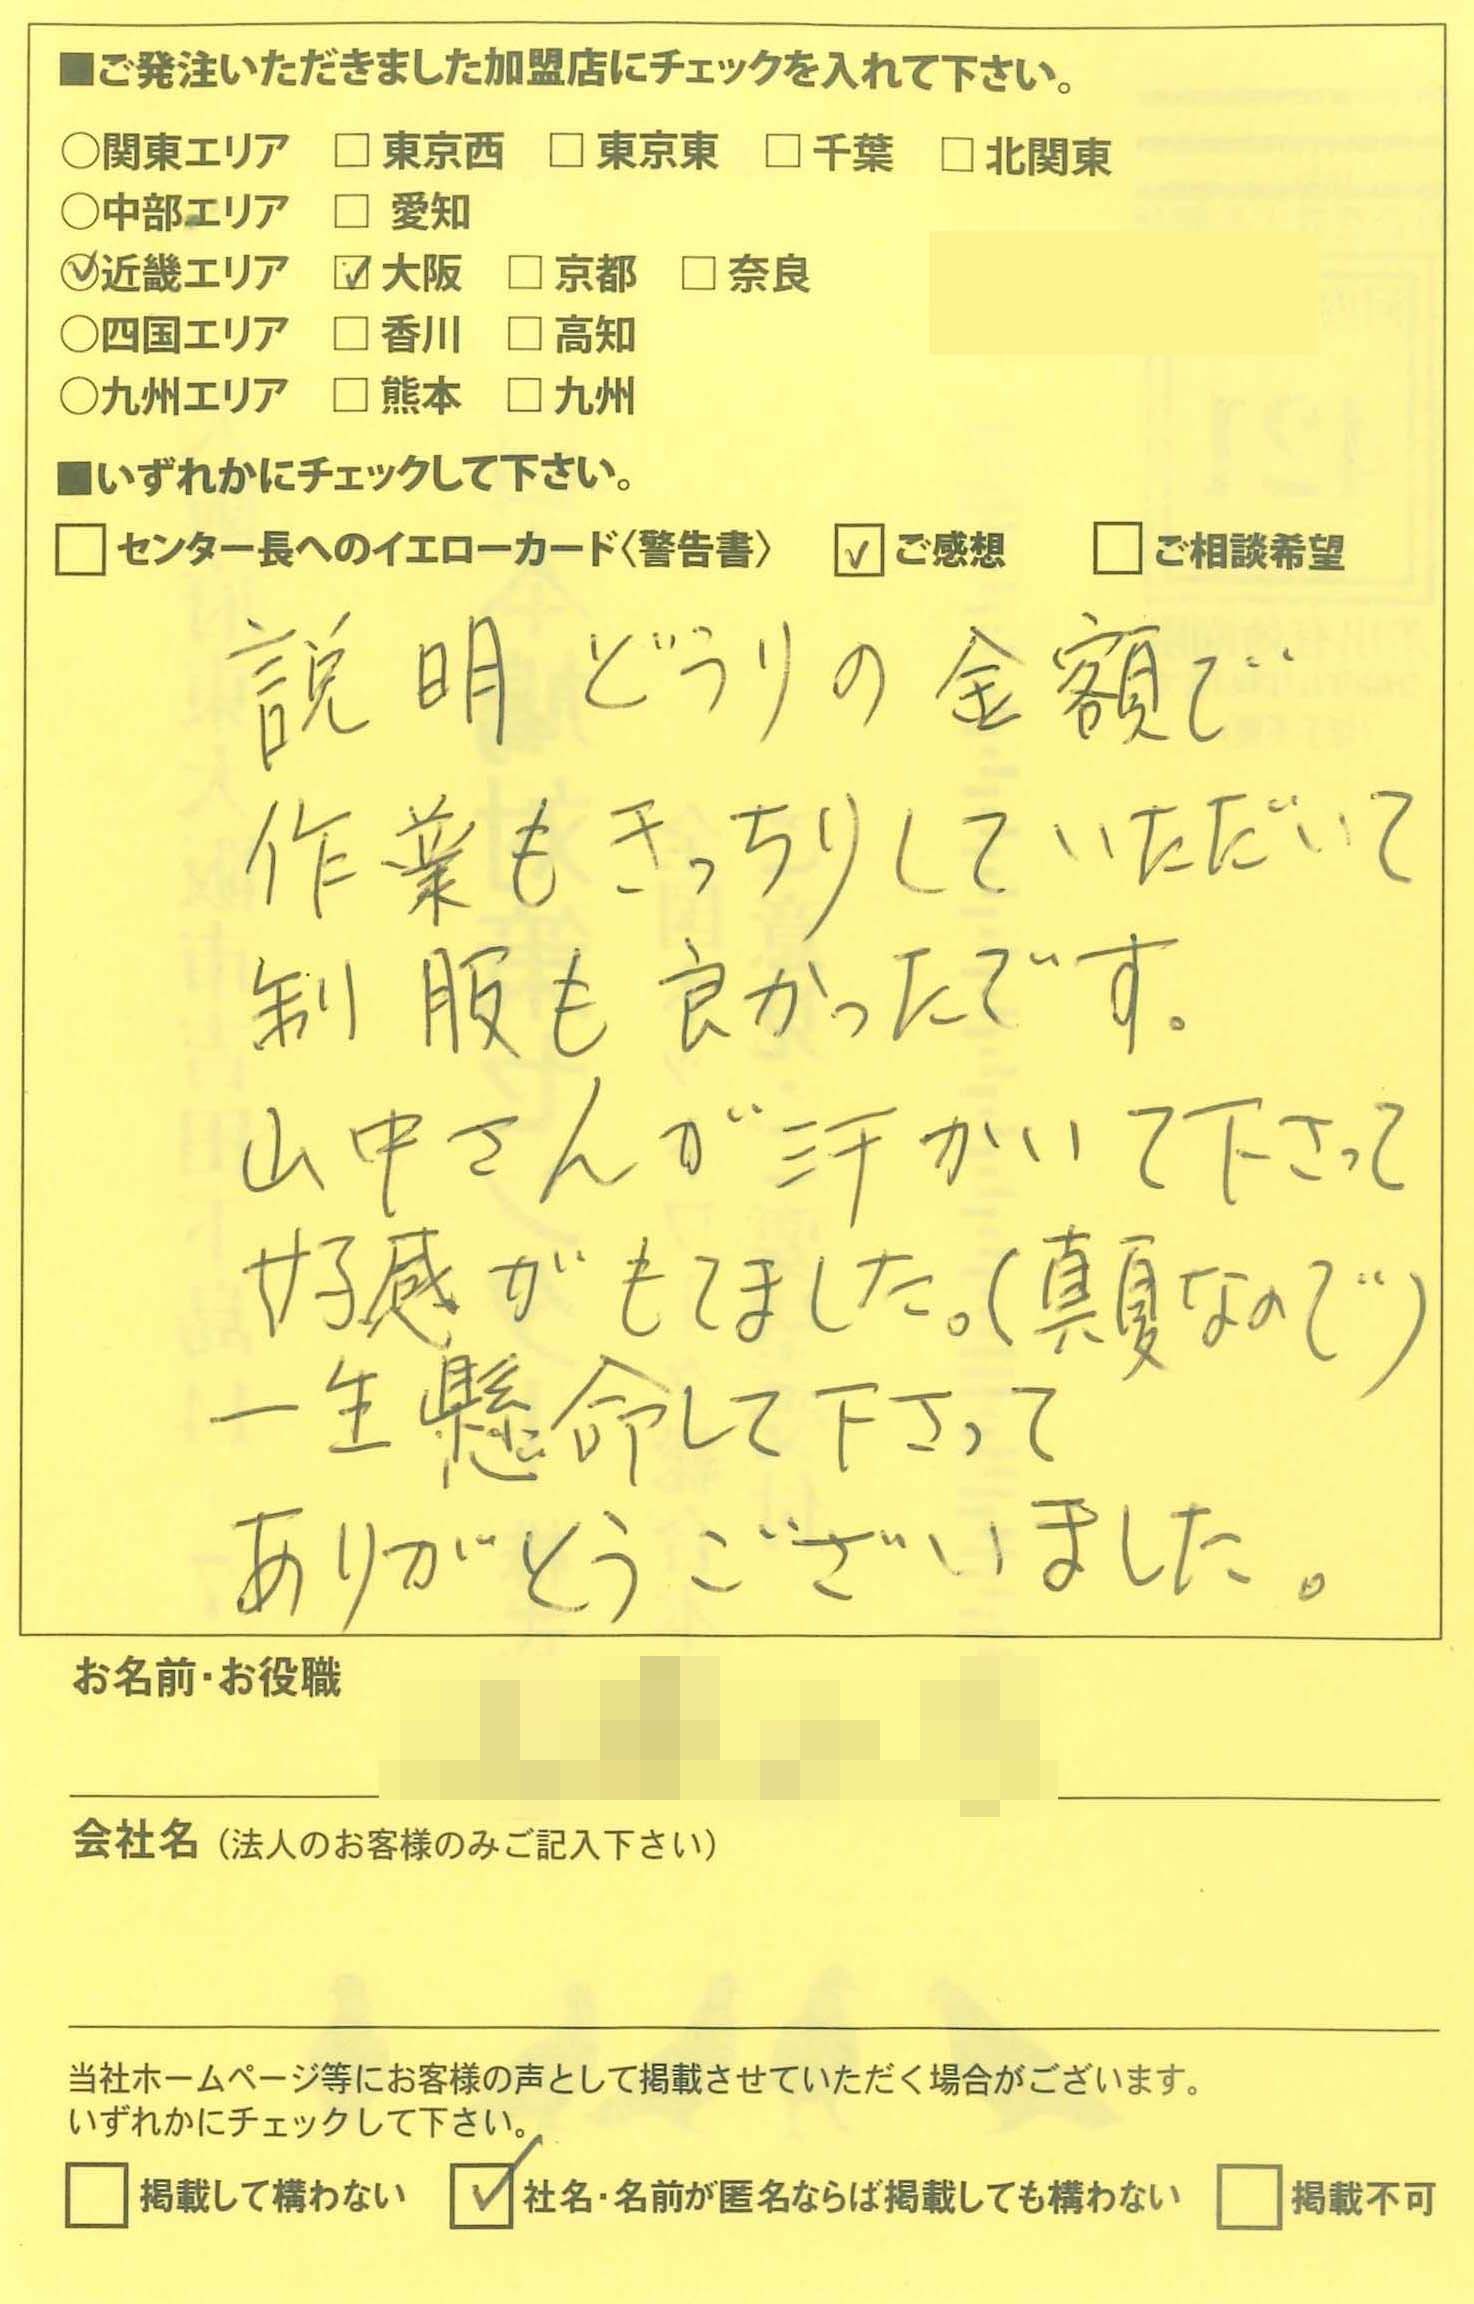 ■ご発注いただきました加盟店にチェックを入れて下さい。
○関東エリア □ 東京西 □ 東京東 □ 千葉 □ 北関東
○中部エリア □ 愛知
○近畿エリア ☑ 大阪 □ 京都 □ 奈良
○四国エリア □ 香川 □ 高知
○九州エリア □ 熊本 □ 九州
■いずれかにチェックして下さい。
□センター長へのイエローカード〈警告書〉 ☑ご感想 □ご相談希望
説明どうりの金額で
作業もきっちりしていただいて
制服も良かったです。
山中さんが汗かいて下さって
好感がもてました。(真夏なので)
一生懸命して下さって
ありがとうございました。
お名前・お役職
会社名（法人のお客様のみご記入下さい）
当社ホームページ等にお客様の声として掲載させていただく場合がございます。
いずれかにチェックして下さい。
□掲載して構わない ☑社名・名前が匿名ならば掲載しても構わない □掲載不可